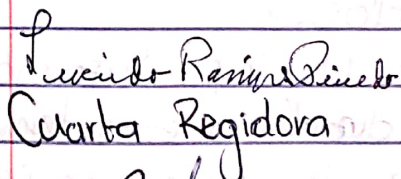 Lucinda Ramírez Pinedo
Cuarta Regidora